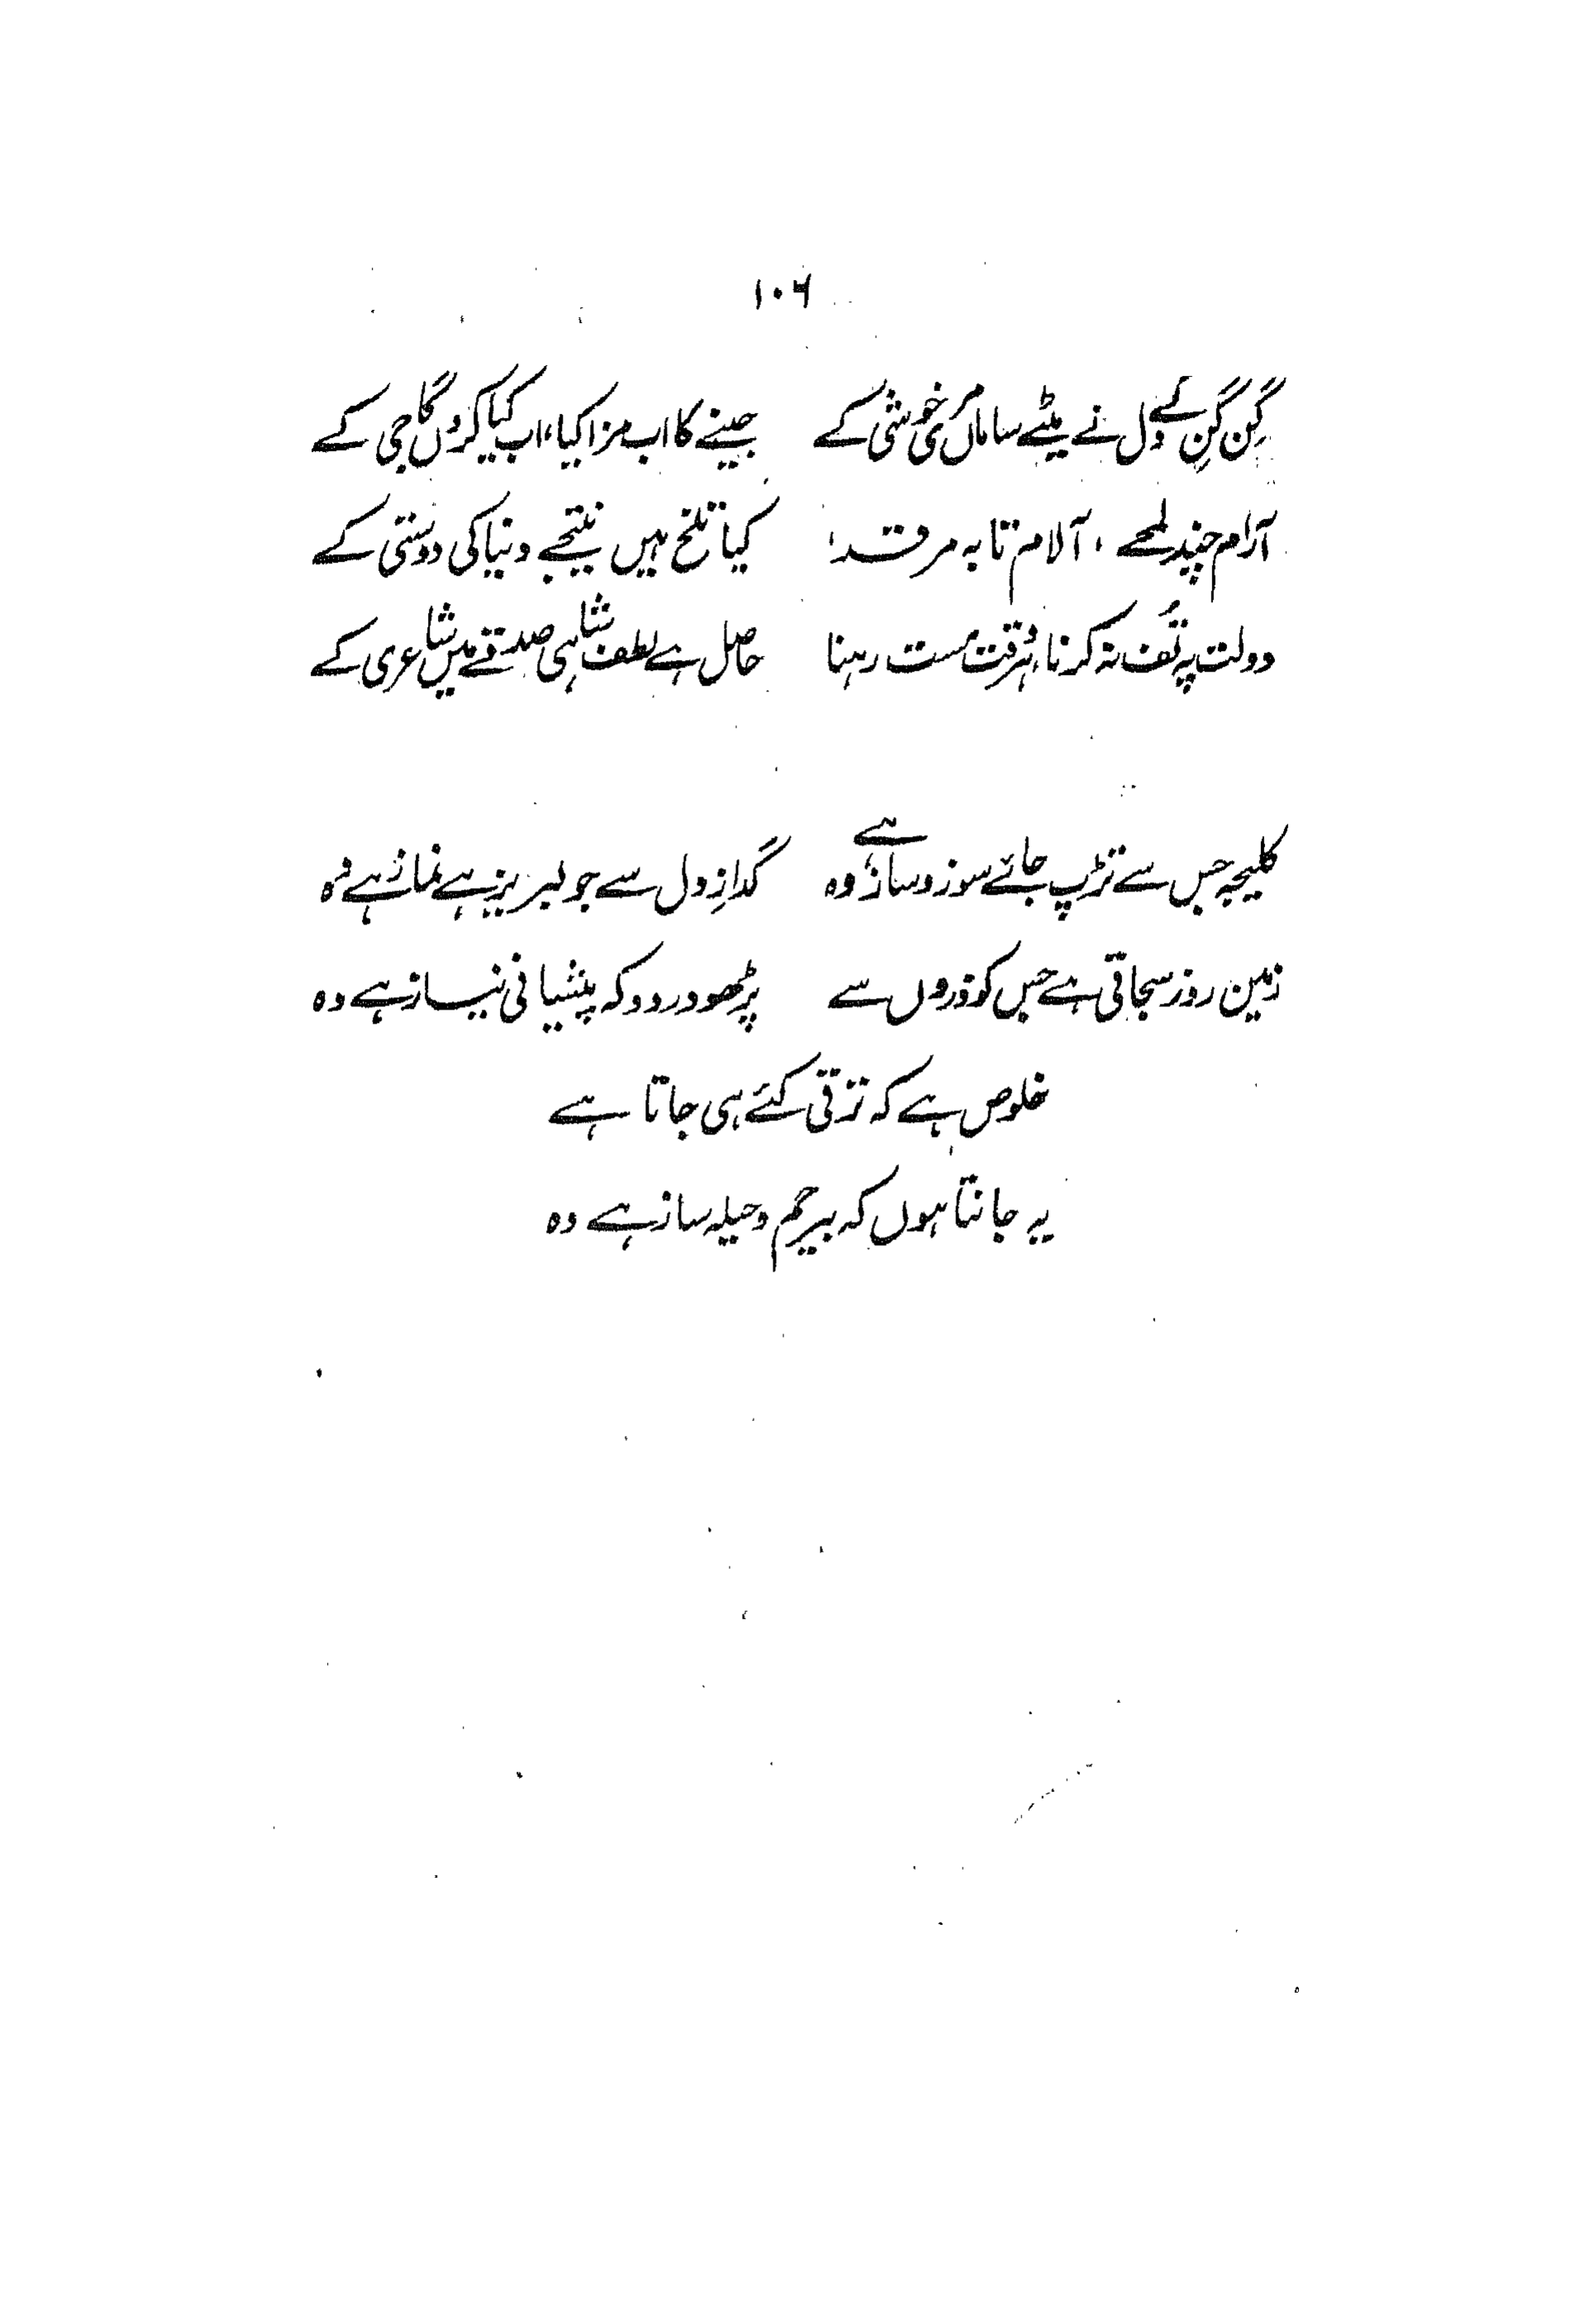 ۱۰۶
گِن گِن کے دل نے میٹے ساماں مری خوشی کے جینے کا اب مزا کیا، اب کیا کروں گا جی کے
آرام چند لمحے ، آلام تا بہ مرقد ا کیا تلخ ہیں نتیجے دنیا کی دوستی کے
دولت پہ تُف نہ کرنا، ہر وقت مست رہنا حاصل ہے لطف شاہی صدقے میں شاعری کے
کلیجہ جس سے تڑپ جائے سوز و ساز ہے وہ گدازِ دل سے جو لبریز ہے نماز ہے وہ
زمین روز سجاتی ہے جس کو ذروں سے پڑھو درود کہ پیشانی نیاز ہے وہ
خلوص ہے کہ ترقی کئے ہی جاتا ہے
یہ جانتا ہوں کہ بیرحم و حیلہ ساز ہے وہ